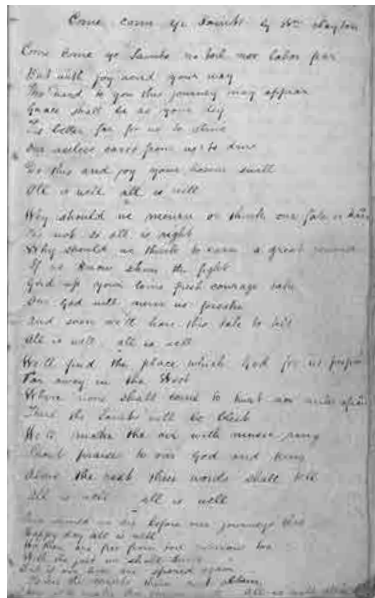 Come come ye Saints by Wm Clayton
Come come ye Saints no toil nor labor fear
But with joy wend your way
Tho hard to you this journey may appear
Grace shall be as your day
Tis better far for us to strive
Our useless cares from us to drive
Do this and joy your hearts swell
All is well all is well
Why should we mourn or think our lot is hard
Tis not so all is right
Why should we think to earn a great reward
If we now shun the fight
Gird up your loins fresh courage take
Our God will never us forsake
And soon we'll have this tale to tell
All is well all is well
We'll find the place which God for us prepared
Far away in the West
Where none shall come to hurt nor make afraid
There the Saints will be blest
We'll make the air with music ring
Shout praise to our God and King
Above the rest these words shall tell
All is well all is well
And should we die before our journeys
Happy day all is well
We then are free from toil and sorrow too
With the just we shall
But if our lives are spared again
To see the Saints
all is well